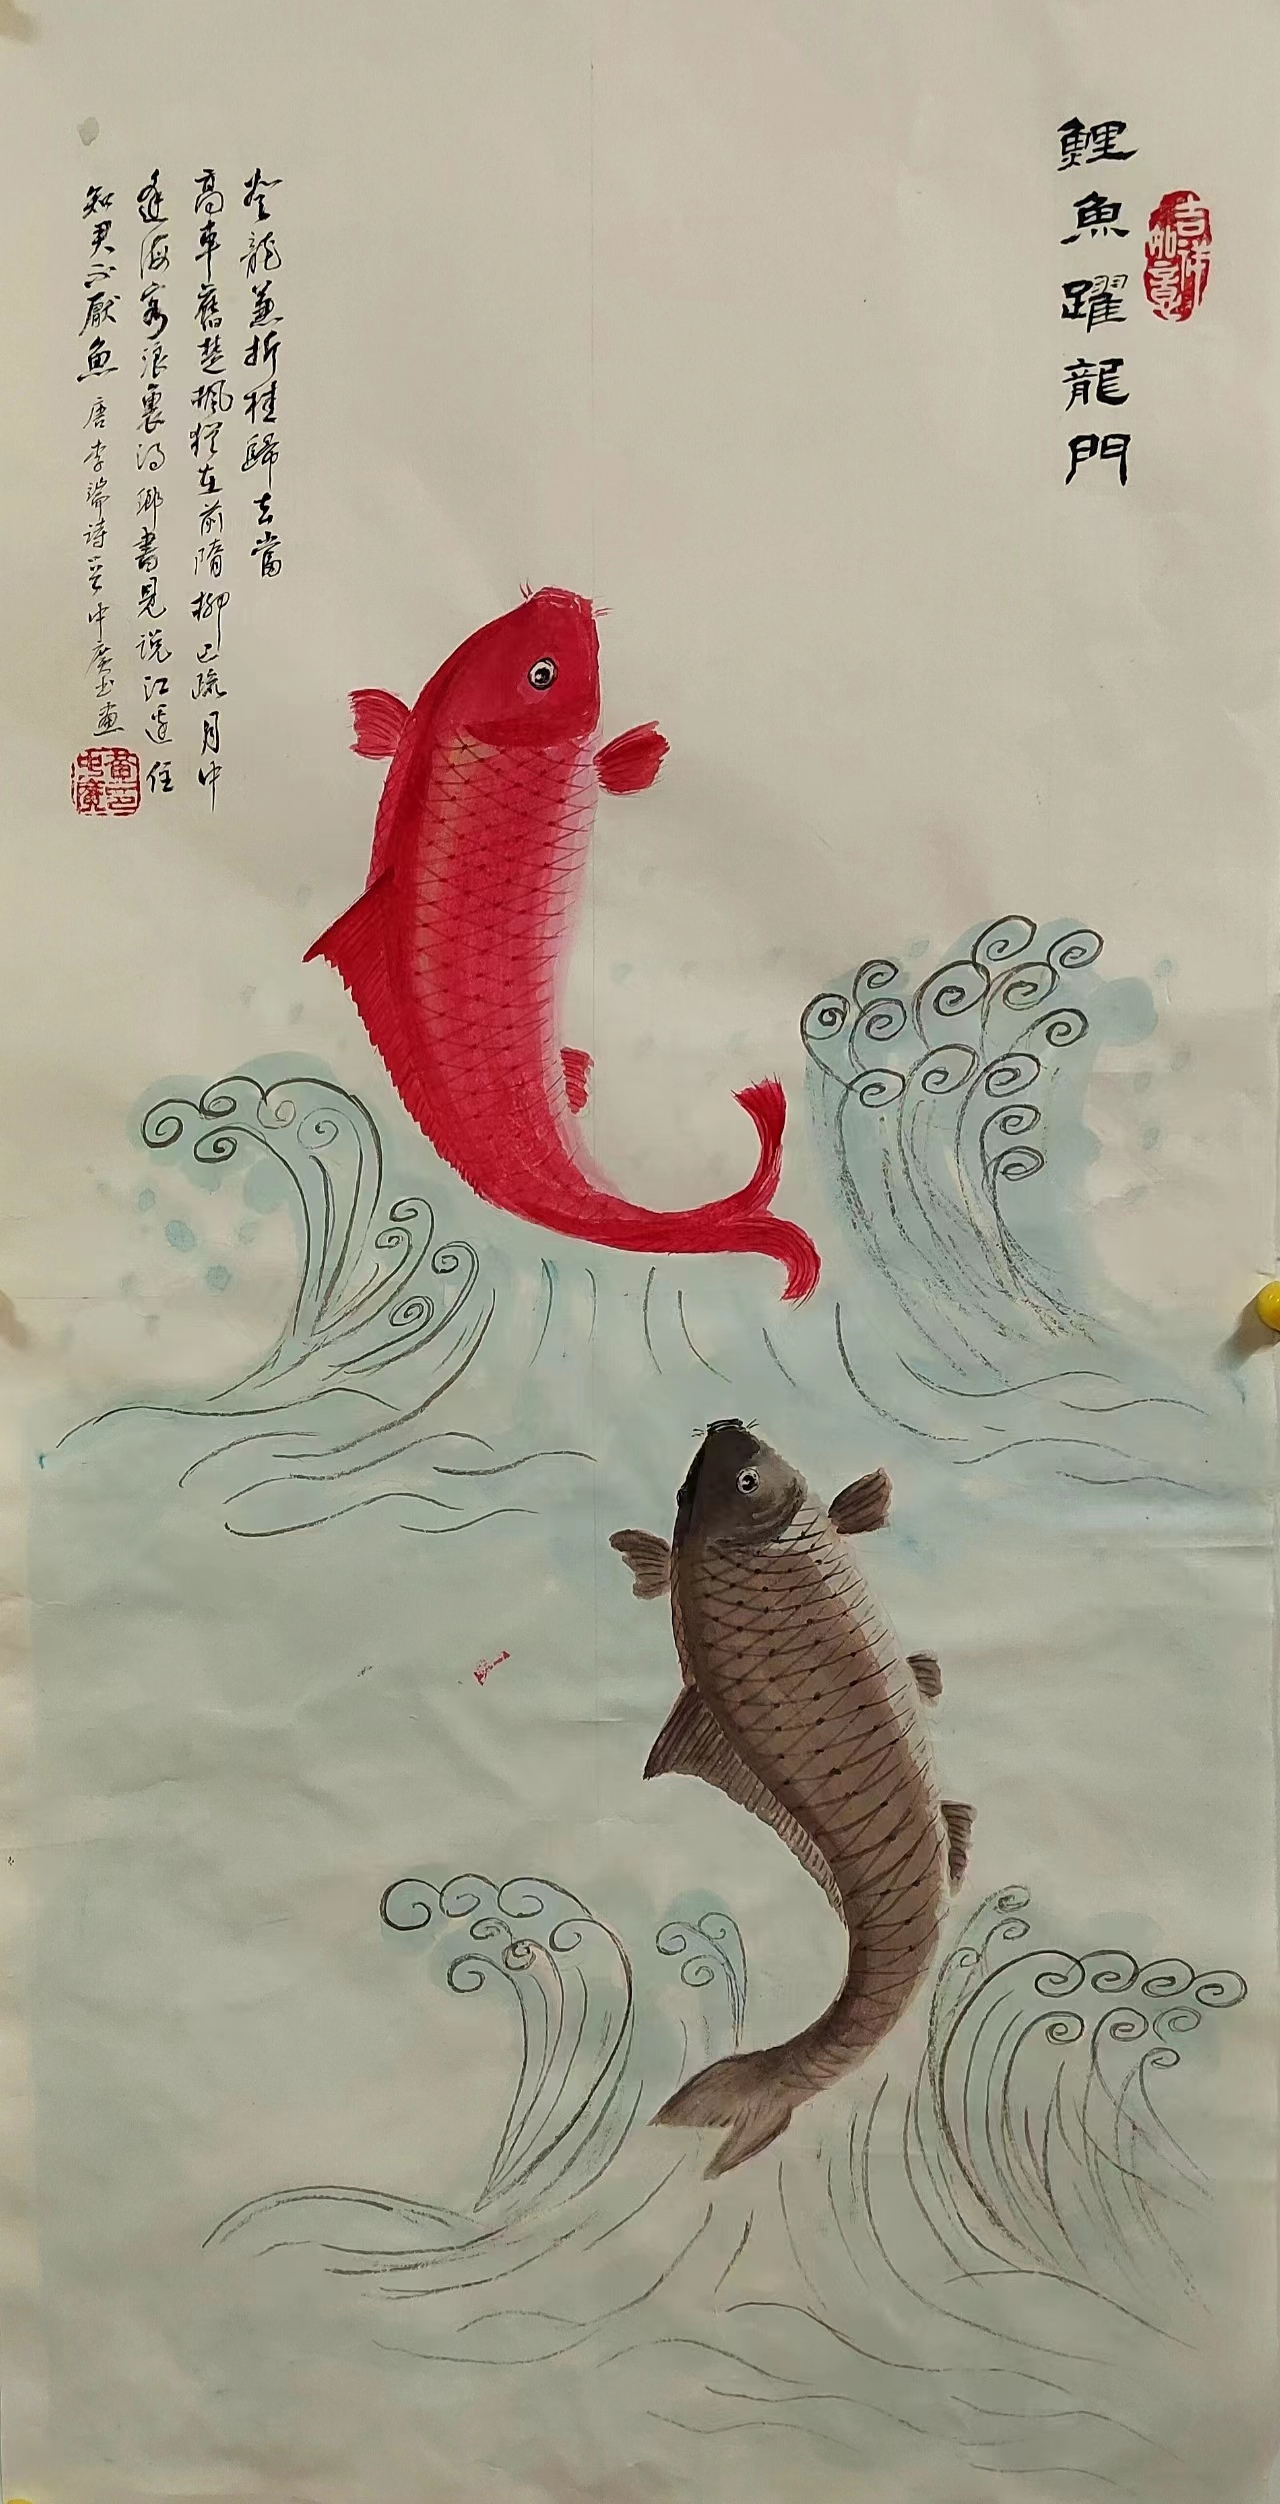 鯉魚躍龍門
吉祥如意
登龍兼折桂歸去當
高車舊楚楓猶在前隋柳已疏月中
逢海客浪裏得鄉書見說江邊住
知君不厭魚 唐李端詩 中慶書畫
黃中慶印